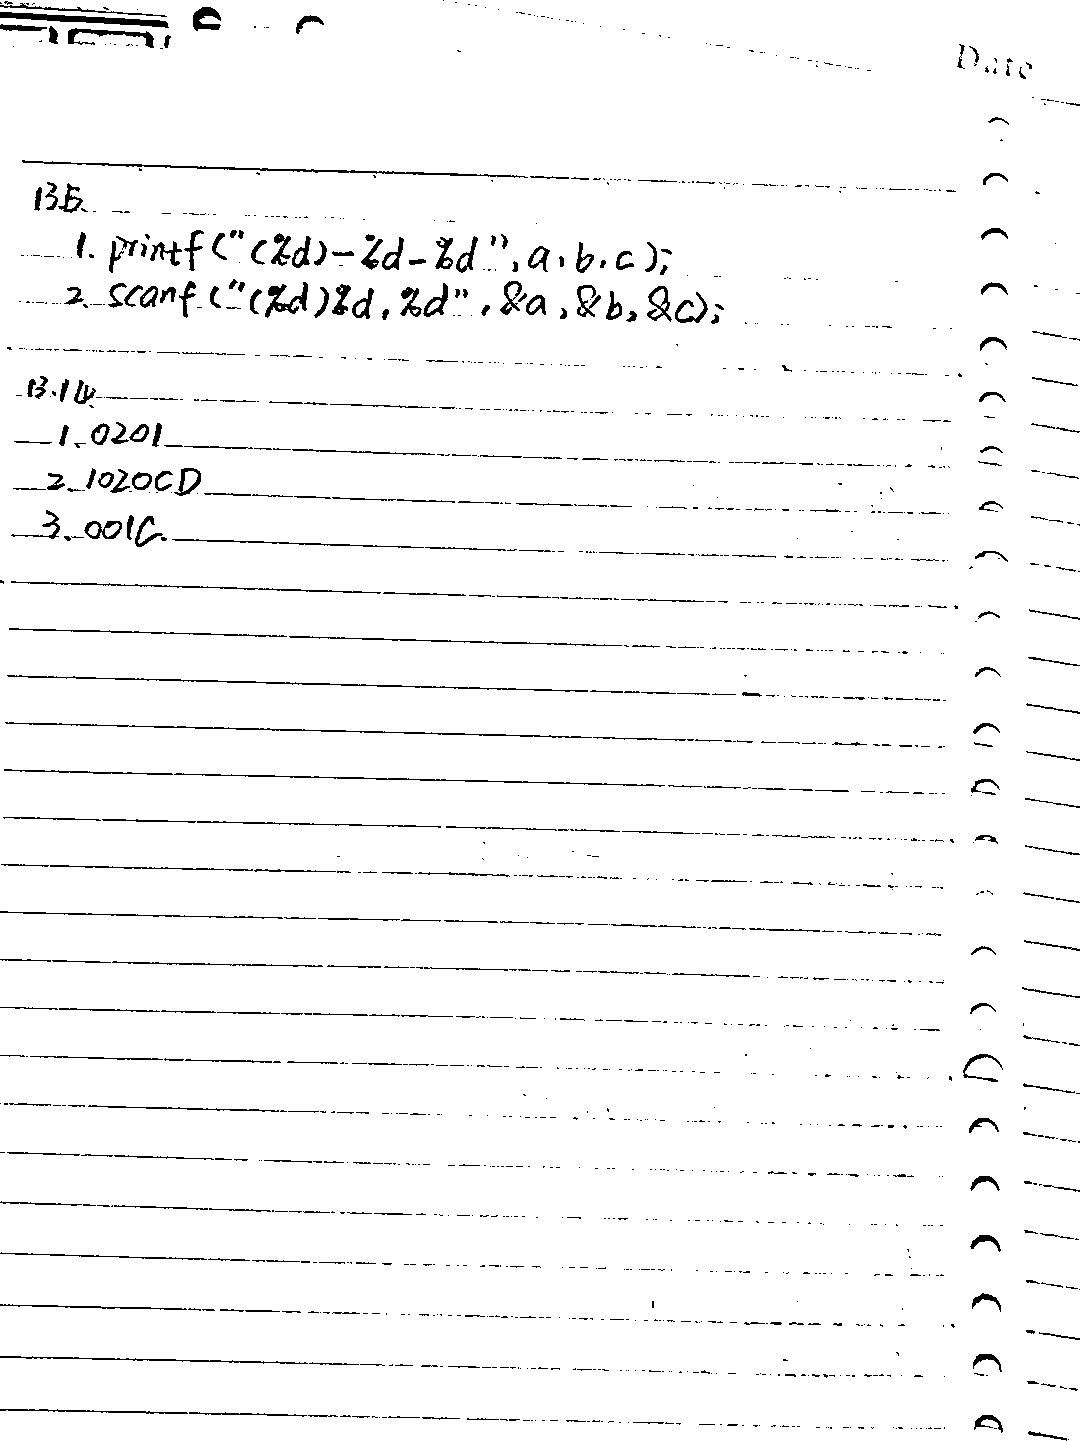 Date
13.5
1. printf("(%d)-%d-%d", a, b, c);
2. scanf("(%d)%d, %d", &a, &b, &c);
13.14
1. 0201
2. 1020CD
3. 001C.